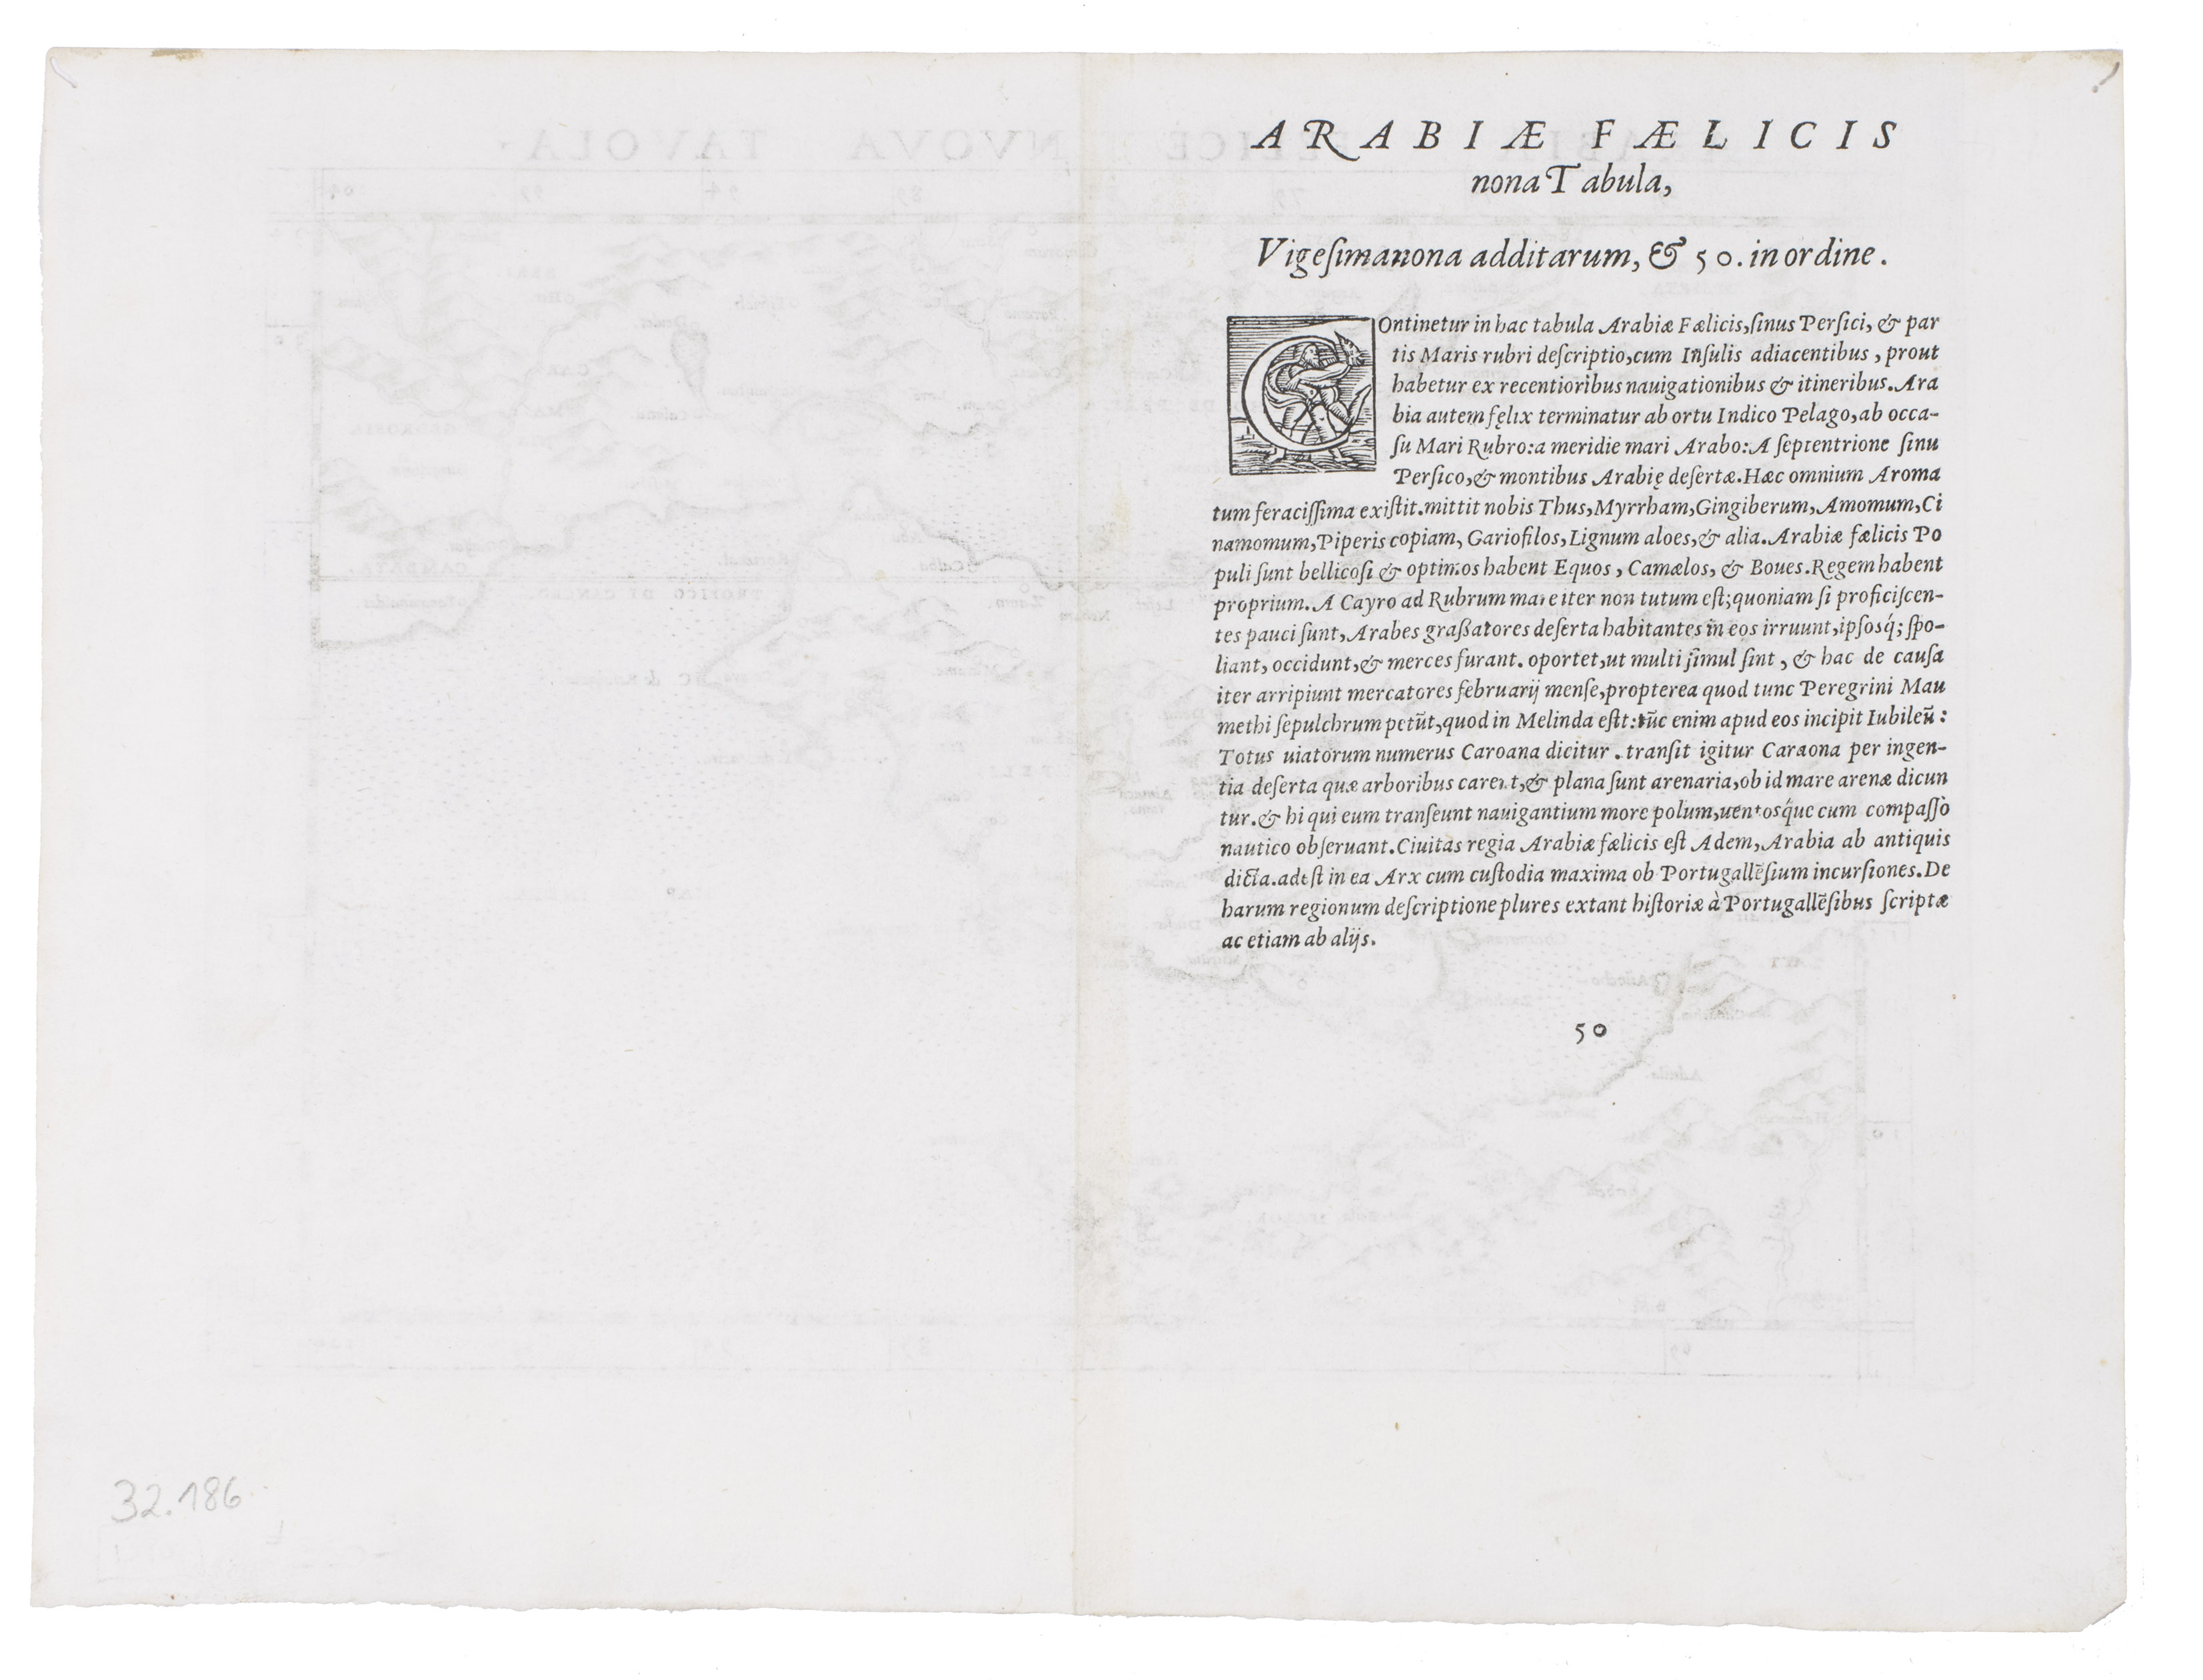 ARABIÆ FÆLICIS
nona Tabula,
Vigeſimanona additarum, & 50. in ordine.
Continetur in hac tabula Arabiæ Fælicis, ſinus Perſici, & par
tis Maris rubri deſcriptio, cum Inſulis adiacentibus, prout
habetur ex recentioribus nauigationibus & itineribus. Ara
bia autem fęlix terminatur ab ortu Indico Pelago, ab occa-
ſu Mari Rubro: a meridie mari Arabo: A ſeptentrione ſinu
Perſico, & montibus Arabię deſertæ. Hæc omnium Aroma
tum feraciſſima exiſtit. mittit nobis Thus, Myrrham, Gingiberum, Amomum, Ci
namomum, Piperis copiam, Gariofilos, Lignum aloes, & alia. Arabiæ fælicis Po
puli ſunt bellicoſi & optimos habent Equos, Camælos, & Boues. Regem habent
proprium. A Cayro ad Rubrum mare iter non tutum eſt; quoniam ſi proficiſcen-
tes pauci ſunt, Arabes graßatores deſerta habitantes in eos irruunt, ipſosq́; ſpo-
liant, occidunt, & merces furant. oportet, ut multi ſimul ſint, & hac de cauſa
iter arripiunt mercatores februarij menſe, propterea quod tunc Peregrini Mau
methi ſepulchrum petũt, quod in Melinda eſtt: tũc enim apud eos incipit Iubileũ:
Totus uiatorum numerus Caroana dicitur. tranſit igitur Caraona per ingen-
tia deſerta quæ arboribus carent, & plana ſunt arenaria, ob id mare arenæ dicun
tur. & hi qui eum tranſeunt nauigantium more polum, uentosq́ue cum compaſſo
nautico obſeruant. Ciuitas regia Arabiæ fælicis eſt Adem, Arabia ab antiquis
dicta. adeſt in ea Arx cum cuſtodia maxima ob Portugallẽſium incurſiones. De
harum regionum deſcriptione plures extant hiſtoriæ à Portugallẽſibus ſcriptæ
ac etiam ab alijs.
50
32.186